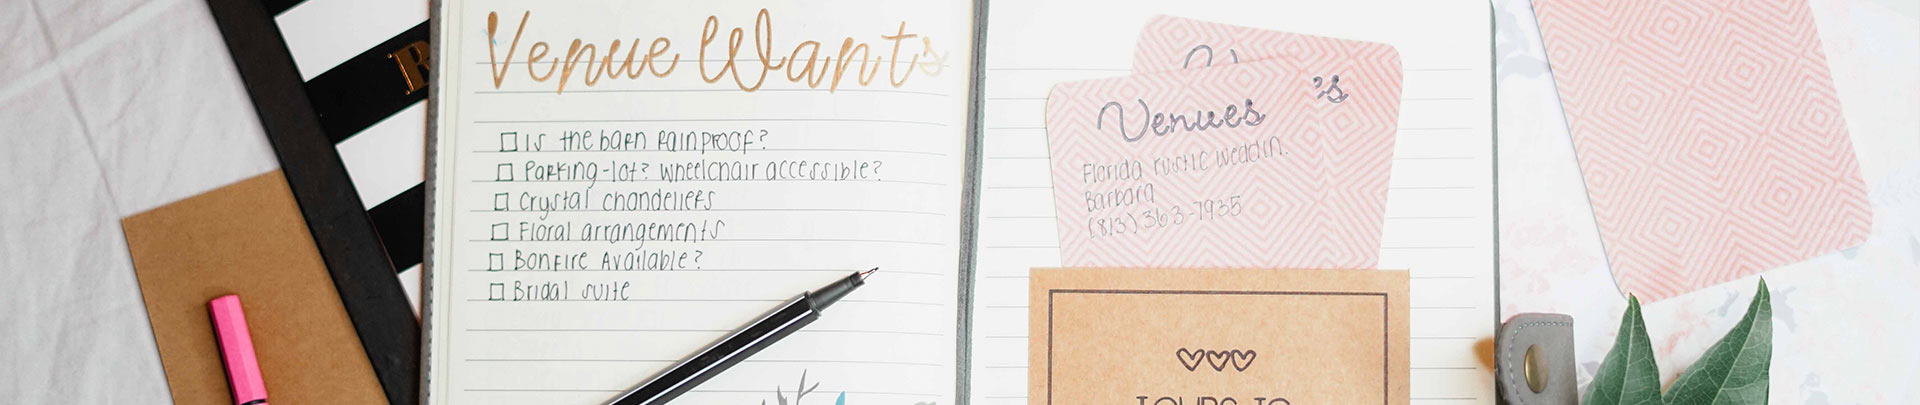 Venue Wants
Is the barn rainproof?
Parking-lot? Wheelchair accessible?
Crystal chandeliers
Floral arrangements
Bonfire Available?
Bridal suite
's
Venues
Florida rustic weddin.
Barbara
(813) 363-7935